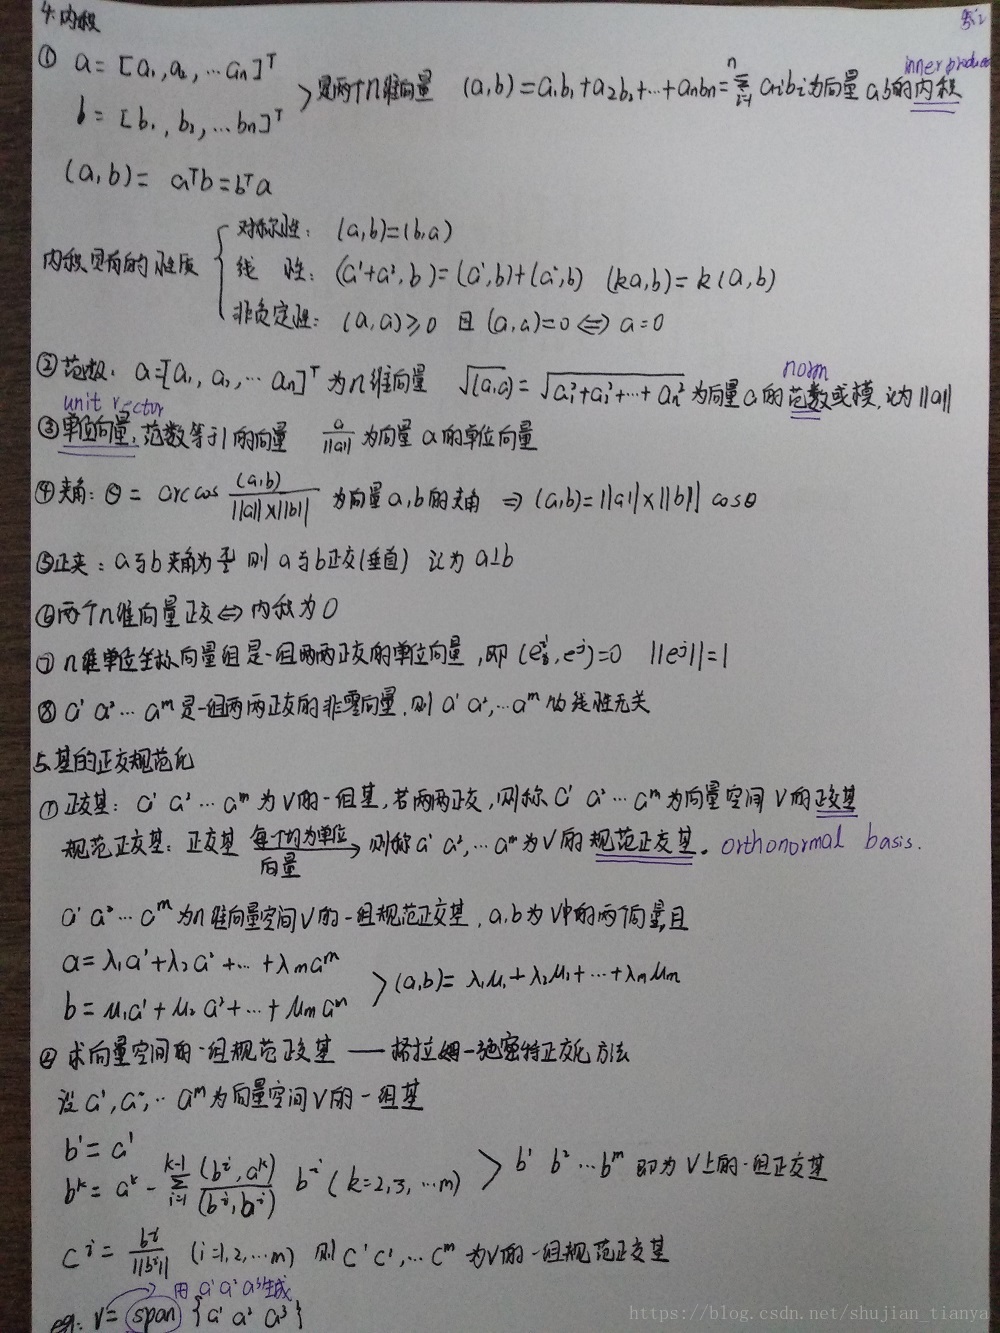 4. 内积
① a = [a₁, a₂, … aₙ]ᵀ
b = [b₁, b₂, … bₙ]ᵀ
> 是两个n维向量 (a,b) = a₁b₁ + a₂b₂ + … + aₙbₙ = Σᵢ₌₁ⁿ aᵢbᵢ 为向量 a,b的内积
inner produc
(a,b) = aᵀb = bᵀa
内积具有的性质
对称性: (a,b)=(b,a)
线 性: (a¹+a², b) = (a¹,b)+(a²,b) (ka,b) = k(a,b)
非负定性: (a,a)≥0 且 (a,a)=0 ⇔ a=0
② 范数: a=[a₁, a₂, … aₙ]ᵀ 为n维向量 √(a,a) = √(a₁²+a₂²+…+aₙ²) 为向量a的范数或模, 记为 ||a||
norm
unit vector
③ 单位向量, 范数等于1的向量 a/||a|| 为向量a的单位向量
④ 夹角: θ = arccos (a,b)/(||a||×||b||) 为向量a,b的夹角 ⇒ (a,b)=||a||×||b|| cosθ
⑤正交: a与b夹角为π/2 则 a与b正交(垂直) 记为 a⊥b
⑥两个n维向量正交⇔内积为0
⑦ n维单位坐标向量组是一组两两正交的单位向量, 即 (eⁱ, eʲ)=0 ||eʲ||=1
⑧ a¹ a² … aᵐ 是一组两两正交的非零向量, 则 a¹ a², … aᵐ 线性无关
5. 基的正交规范化
① 正交基: a¹ a² … aᵐ 为V的一组基, 若两两正交, 则称 a¹ a² … aᵐ 为向量空间 V的正交基
规范正交基: 正交基 每个均为单位向量→ 则称 a¹ a², … aᵐ 为V的规范正交基. orthonormal basis.
a¹ a² … aᵐ 为n维向量空间V的一组规范正交基, a,b为V中的两个向量,且
a = λ₁a¹+λ₂a²+…+λₘaᵐ
b = μ₁a¹+μ₂a²+…+μₘaᵐ
> (a,b) = λ₁μ₁+λ₂μ₂+…+λₘμₘ
② 求向量空间的一组规范正交基 —— 格拉姆-施密特正交化方法
设 a¹, a², … aᵐ 为向量空间V的一组基
b¹ = a¹
bᵏ = aᵏ - Σᵢ₌₁ᵏ⁻¹ (bⁱ,aᵏ)/(bⁱ,bⁱ) bⁱ (k=2,3, … m)
> b¹ b² … bᵐ 即为V上的一组正交基
cⁱ = bⁱ/||bⁱ|| (i=1,2, … m) 则 c¹ c¹, … cᵐ 为V的一组规范正交基
用 a¹ a² a³生成
eg: V = span {a¹ a² a³}
https://blog.csdn.net/shujian_tianya